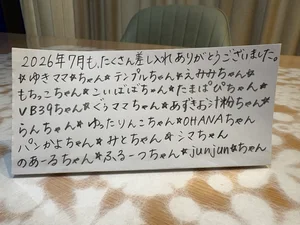 2026年7月も、たくさん差し入れありがとうございました。
☆ゆきママ☆ちゃん☆テンプルちゃん☆えみみちゃん☆
もちっこちゃん☆こいばばちゃん☆たまぱぴちゃん☆
VB39ちゃん☆ぐぅママちゃん☆あずきお汁粉ちゃん☆
らんちゃん☆ゆったりんこちゃん☆OHANAちゃん
パンかよちゃん☆みとちゃん☆シマちゃん
のあーるちゃん☆ふるーつちゃん☆junjun☆ちゃん